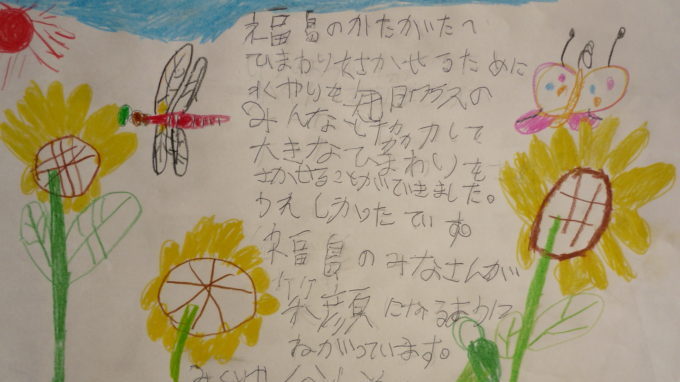 福島のかたがたへ
ひまわりをさかせるために
水やりを毎日クラスの
みんなと協力して
大きなひまわりを
さかせることができました。
うれしかったです。
福島のみなさんが
笑顔になるように
ねがっています。